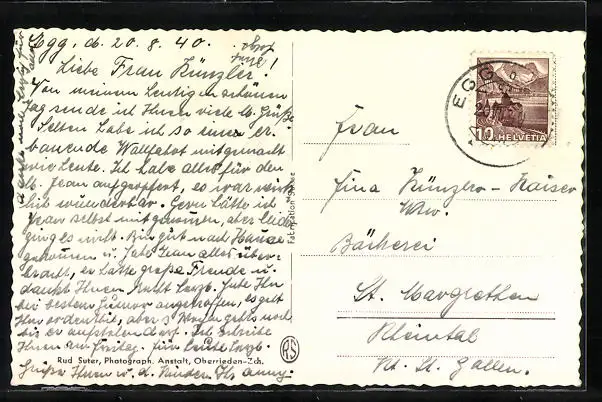 Egg, d. 20. 8. 40.
Liebe Frau Künzler!
Von meinem heutigen schönen
Tag sende ich Ihnen viele lb. Grüße.
Selten habe ich so eine er-
bauende Wallfahrt mitgemacht
wie heute. Ich habe alles für den
lb. Jean aufgeopfert, es war wirk-
lich wunderbar. Gern hätte ich
Jean selbst mitgenommen, aber leider
ging es nicht. Bin gut nach Hause
gekommen u. habe Jean alles über-
bracht, er hatte große Freude u.
dankt Ihnen recht herzl. Habe Ihn
bei bestem Humor angetroffen, es geht
Ihm ordentlich, aber
bis er aufstehen darf. Ich schreibe
Ihnen am Freitag. Für heute herzl.
Grüße Ihnen u. d. Kinder Ihr
Rud Suter, Photograph. Anstalt, Oberrieden-Zch.
RS
Fabrication Suisse
EGG
10 HELVETIA
Frau
Fina Künzler-Kaiser
Wwe.
Bäckerei
St. Margrethen
Rheintal
Kt. St. Gallen.